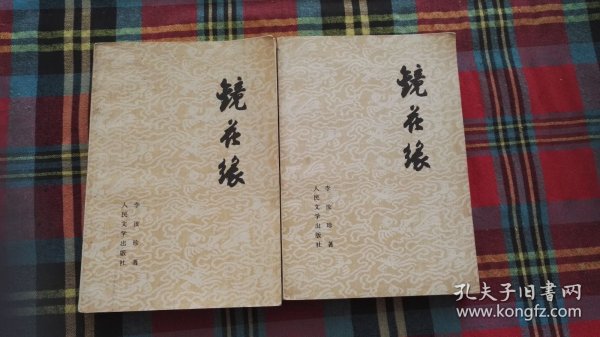 镜花缘
李汝珍 著
人民文学出版社
镜花缘
李汝珍 著
人民文学出版社
孔夫子旧书网